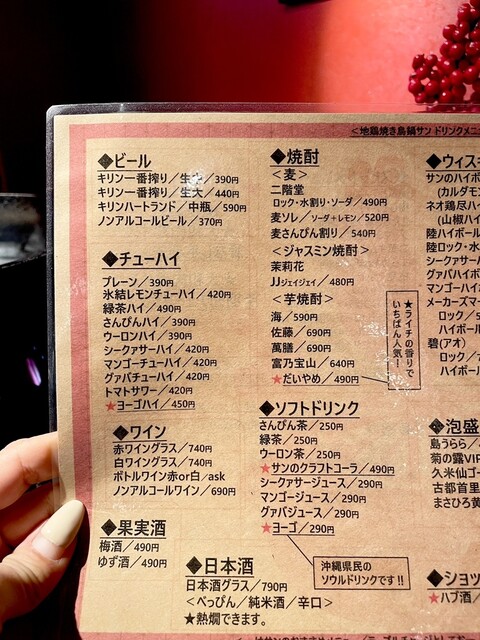 <地鶏焼き鳥鍋サン ドリンクメニュ
◆ビール
キリン一番搾り／生 390円
キリン一番搾り／生大／440円
キリンハートランド／中瓶／590円
ノンアルコールビール／370円
◆チューハイ
プレーン／390円
氷結レモンチューハイ／420円
緑茶ハイ／490円
さんぴんハイ／390円
ウーロンハイ／390円
シークァサーハイ／420円
マンゴーチューハイ／420円
グァバチューハイ／420円
トマトサワー／420円
★ヨーゴハイ／450円
◆ワイン
赤ワイングラス／740円
白ワイングラス／740円
ボトルワイン赤or白／ask
ノンアルコールワイン／690円
◆果実酒
梅酒／490円
ゆず酒／490円
◆焼酎
＜麦＞
二階堂
ロック・水割り・ソーダ／490円
麦ソレ／ソーダ＋レモン／520円
麦さんぴん割り／540円
＜ジャスミン焼酎＞
茉莉花
JJジェイジェイ／480円
＜芋焼酎＞
海／590円
佐藤／690円
萬膳／690円
富乃宝山／640円
★だいやめ／490円
★ライチの香りで
いちばん人気！
◆ソフトドリンク
さんぴん茶／250円
緑茶／250円
ウーロン茶／250円
★サンのクラフトコーラ／490円
シークァサージュース／290円
マンゴージュース／290円
グァバジュース／290円
★ヨーゴ／290円
沖縄県民の
ソウルドリンクです!!
◆日本酒
日本酒グラス／790円
＜べっぴん／純米酒／辛口＞
★熱燗できます。
◆ウィスキ
サンのハイボ
(カルダモ
ネオ鶏尽ハイ
(山椒ハイ
陸ハイボール
陸ロック・水
シークァサーハ
グァバハイボ
マンゴーハイボ
メーカーズマー
ロック／5
ハイボール
碧(アオ)
ロック／7
ハイボー
◆泡盛
島うらら／4
菊の露VIP
久米仙ゴー
古都首里
まさひろ黄
◆ショッ
★ハブ酒／